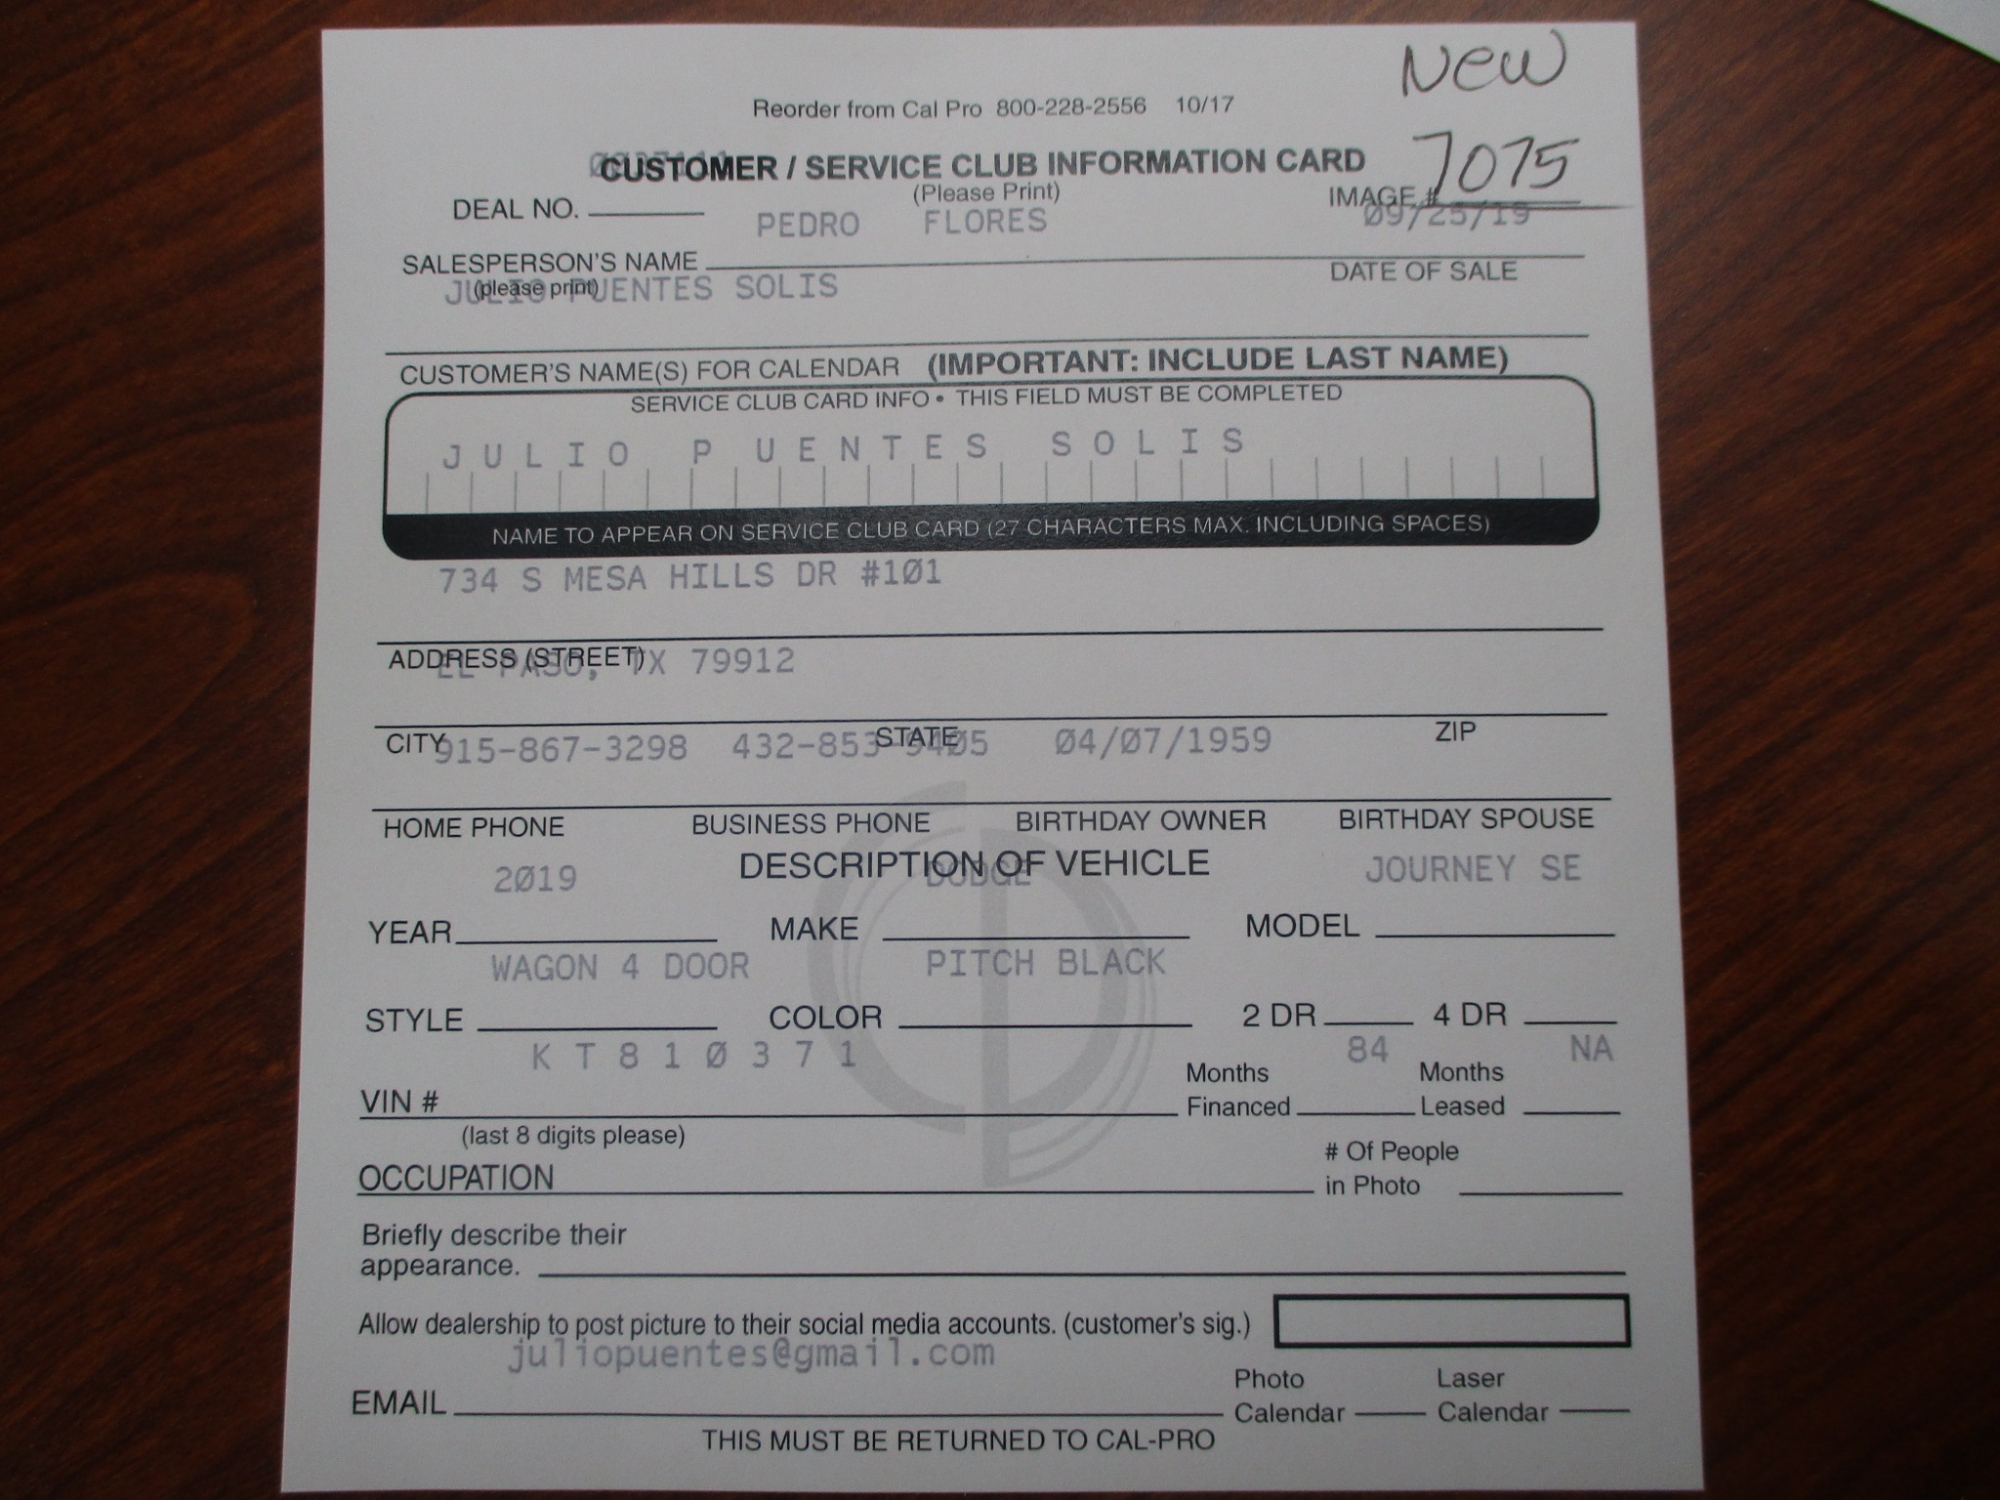 New
Reorder from Cal Pro 800-228-2556 10/17
CUSTOMER / SERVICE CLUB INFORMATION CARD
7075
(Please Print)
DEAL NO.
IMAGE #
PEDRO FLORES
09/25/19
SALESPERSON'S NAME
DATE OF SALE
(please print)
JULIO PUENTES SOLIS
CUSTOMER'S NAME(S) FOR CALENDAR (IMPORTANT: INCLUDE LAST NAME)
SERVICE CLUB CARD INFO • THIS FIELD MUST BE COMPLETED
JULIO PUENTES SOLIS
NAME TO APPEAR ON SERVICE CLUB CARD (27 CHARACTERS MAX. INCLUDING SPACES)
734 S MESA HILLS DR #101
ADDRESS (STREET)
EL PASO, TX 79912
CITY STATE ZIP
915-867-3298 04/07/1959
HOME PHONE BUSINESS PHONE BIRTHDAY OWNER BIRTHDAY SPOUSE
DESCRIPTION OF VEHICLE
2019 DODGE JOURNEY SE
YEAR MAKE MODEL
WAGON 4 DOOR PITCH BLACK
STYLE COLOR 2 DR 4 DR
KT810371 84 NA
VIN # Months Financed Months Leased
(last 8 digits please)
OCCUPATION # Of People in Photo
Briefly describe their
appearance.
Allow dealership to post picture to their social media accounts. (customer's sig.)
juliopuentes@gmail.com
EMAIL Photo Calendar Laser Calendar
THIS MUST BE RETURNED TO CAL-PRO